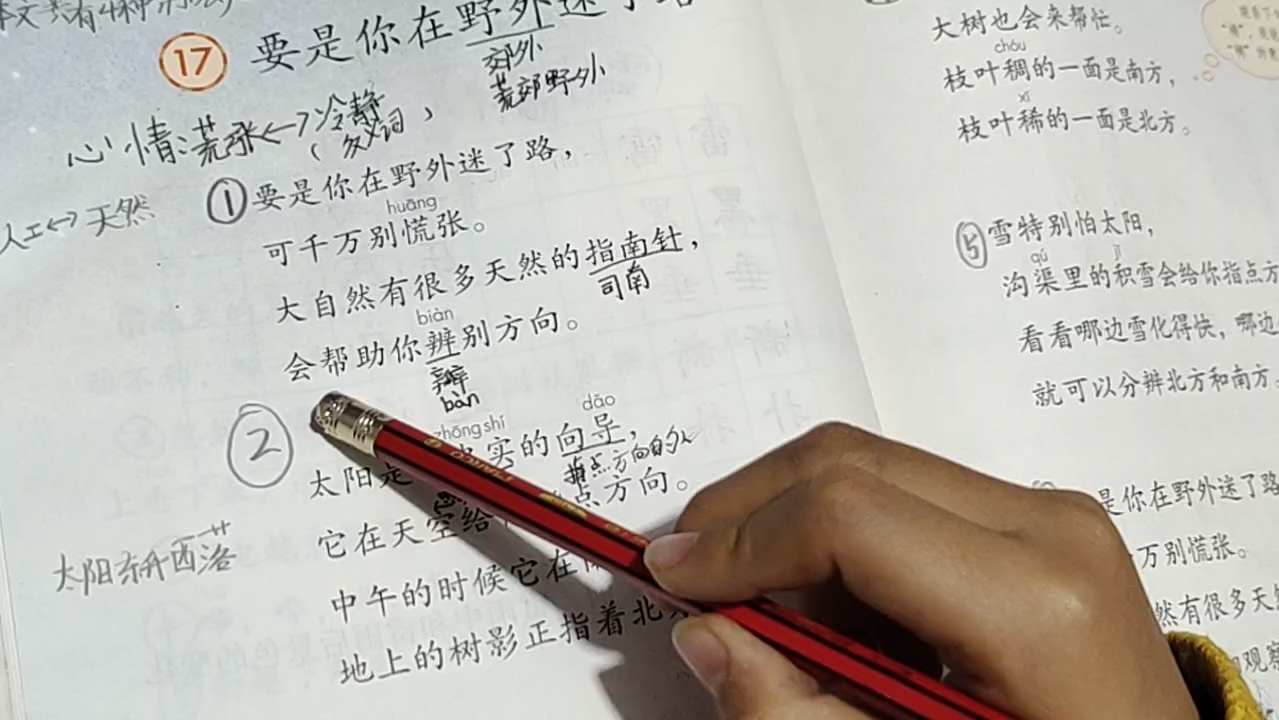 本文共有4种
17 要是你在野外迷了路
郊外
荒郊野外
心情:慌张<->冷静
(反义词)
人工<->天然
①要是你在野外迷了路，
huāng
可千万别慌张。
大自然有很多天然的指南针，
司南
biàn
会帮助你辨别方向。
辫
bàn
②
zhōng shí dǎo
太阳是 实的向导，
指点方向的人
它在天空给 点方向。
太阳东升西落
中午的时候它在
地上的树影正指着北
大树也会来帮忙。
chóu
枝叶稠的一面是南方，
xī
枝叶稀的一面是北方。
⑤雪特别怕太阳，
qú jī
沟渠里的积雪会给你指点方
看看哪边雪化得快，哪边
就可以分辨北方和南方。
是你在野外迷了路
万别慌张。
然有很多天
观察